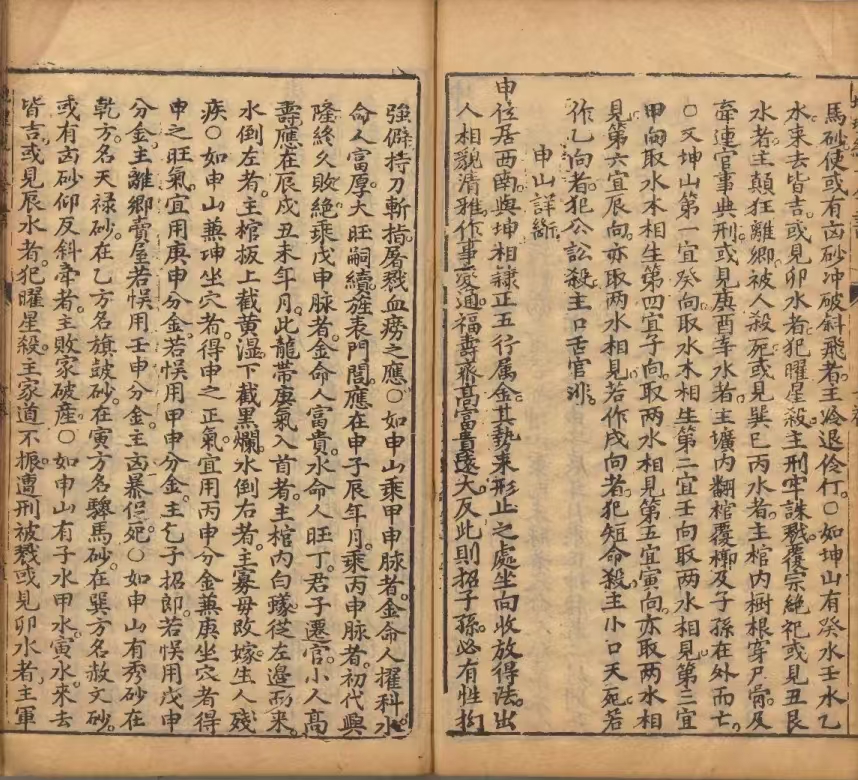 馬砂使或有凶砂冲破斜飛者。主冷退伶仃。○如坤山有癸水壬水乙
水來去皆吉。或見卯水者。犯曜星殺。主刑牢誅戮覆宗絶祀或見丑艮
水者。主顛狂離鄉。被人殺死或見巽巳丙水者。主棺內樹根穿尸骨。及
牽連官事典刑。或見庚酉辛水者。主壙內翻棺覆槨及子孫在外而亡。
○又坤山第一宜癸向取水木相生第二宜壬向取两水相見。第三宜
甲向取水木相生第四宜子向。取两水相見第五宜寅向。亦取两水相
見第六宜辰向。亦取两水相見若作戌向者。犯短命殺。主小口夭死若
作乙向者。犯公訟殺主口舌官非。
申山詳斷。
申位居西南。與坤相隸正五行属金。其勢來形止之處坐向收放得法。出
人相貌清雅。作事变通。福壽齊高富貴遠大。反此則招子孫。必有性拘
強僻持刀斬指屠戮血癆之應○如申山乘甲申脉者。金命人擢科。水
命人富厚。大旺嗣續。旌表門閭。應在申子辰年月。乘丙申脉者。初代興
隆終久敗絶。乘戊申脉者。金命人富貴。水命人旺丁。君子遷官。小人高
壽應在辰戌丑未年月。此龍帶庚氣入首者。主棺內白蟻從左邊而來。
水倒左者。主棺板上截黄湿。下截黑爛。水倒右者。主寡母改嫁。生人殘
疾○如申山兼坤坐穴者。得申之正氣。宜用丙申分金兼庚坐穴者得
申之旺氣。宜用庚申分金。若悞用甲申分金。主乞子招郎。若悞用戊申
分金。主離鄉賣屋若悞用壬申分金。主凶暴促死○如申山有秀砂在
乾方。名天禄砂。在乙方名旗鼓砂。在寅方名驛馬砂。在巽方名赦文砂。
或有凶砂仰反斜牽者。主敗家破産○如申山有子水甲水。寅水。來去
皆吉。或見辰水者。犯曜星殺。主家道不振。遭刑被戮或見卯水者。主軍